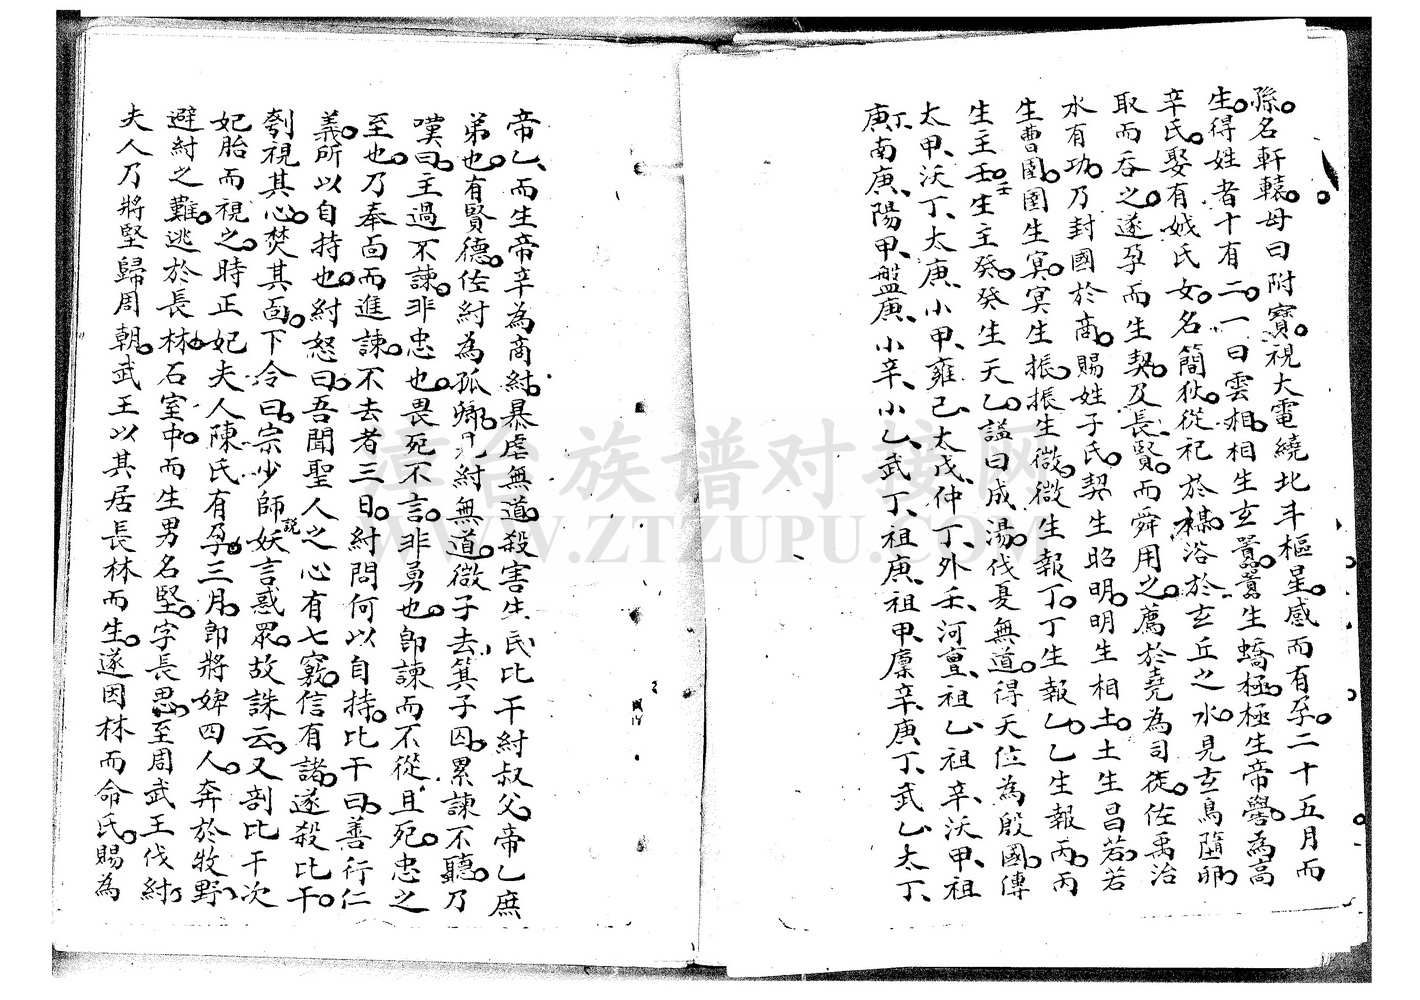 孫名軒轅母曰附寶視大電繞北斗樞星感而有孕二十五月而
生得姓者十有二一曰雲相相生玄囂囂生蟜極極生帝嚳為高
辛氏娶有娀氏女名簡狄從祀於禖浴於玄丘之水見玄鳥隨卵
取而吞之遂孕而生契及長賢而舜用之薦於堯為司徒佐禹治
水有功乃封國於商賜姓子氏契生昭明明生相土土生昌若若
生曹圉圉生冥冥生振振生微微生報丁丁生報乙乙生報丙丙
生主壬壬生主癸癸生天乙謚曰成湯伐夏無道得天位為殷國傳
太甲、沃丁、太庚、小甲、雍己、太戊、仲丁、外壬、河亶、祖乙、祖辛、沃甲、祖
丁、南庚、陽甲、盤庚、小辛、小乙、武丁、祖庚、祖甲、廩辛、庚丁、武乙、太丁、
帝乙、而生帝辛為商紂暴虐無道殺害生民比干紂叔父帝乙庶
弟也有賢德佐紂為孤卿見紂無道微子去箕子囚累諫不聽乃
嘆曰主過不諫非忠也畏死不言非勇也即諫而不從且死忠之
至也乃奉面而進諫不去者三日紂問何以自持比干曰善行仁
義所以自持也紂怒曰吾聞聖人之心有七竅信有諸遂殺比干
刳視其心焚其面下令曰宗少師妖言惑眾故誅云又剖比干次
說
妃胎而視之時正妃夫人陳氏有孕三月即將婢四人奔於牧野
避紂之難逃於長林石室中而生男名堅字長思至周武王伐紂
夫人乃將堅歸周朝武王以其居長林而生遂因林而命氏賜為
漳台族谱对接网
WWW.ZTZUPU.COM